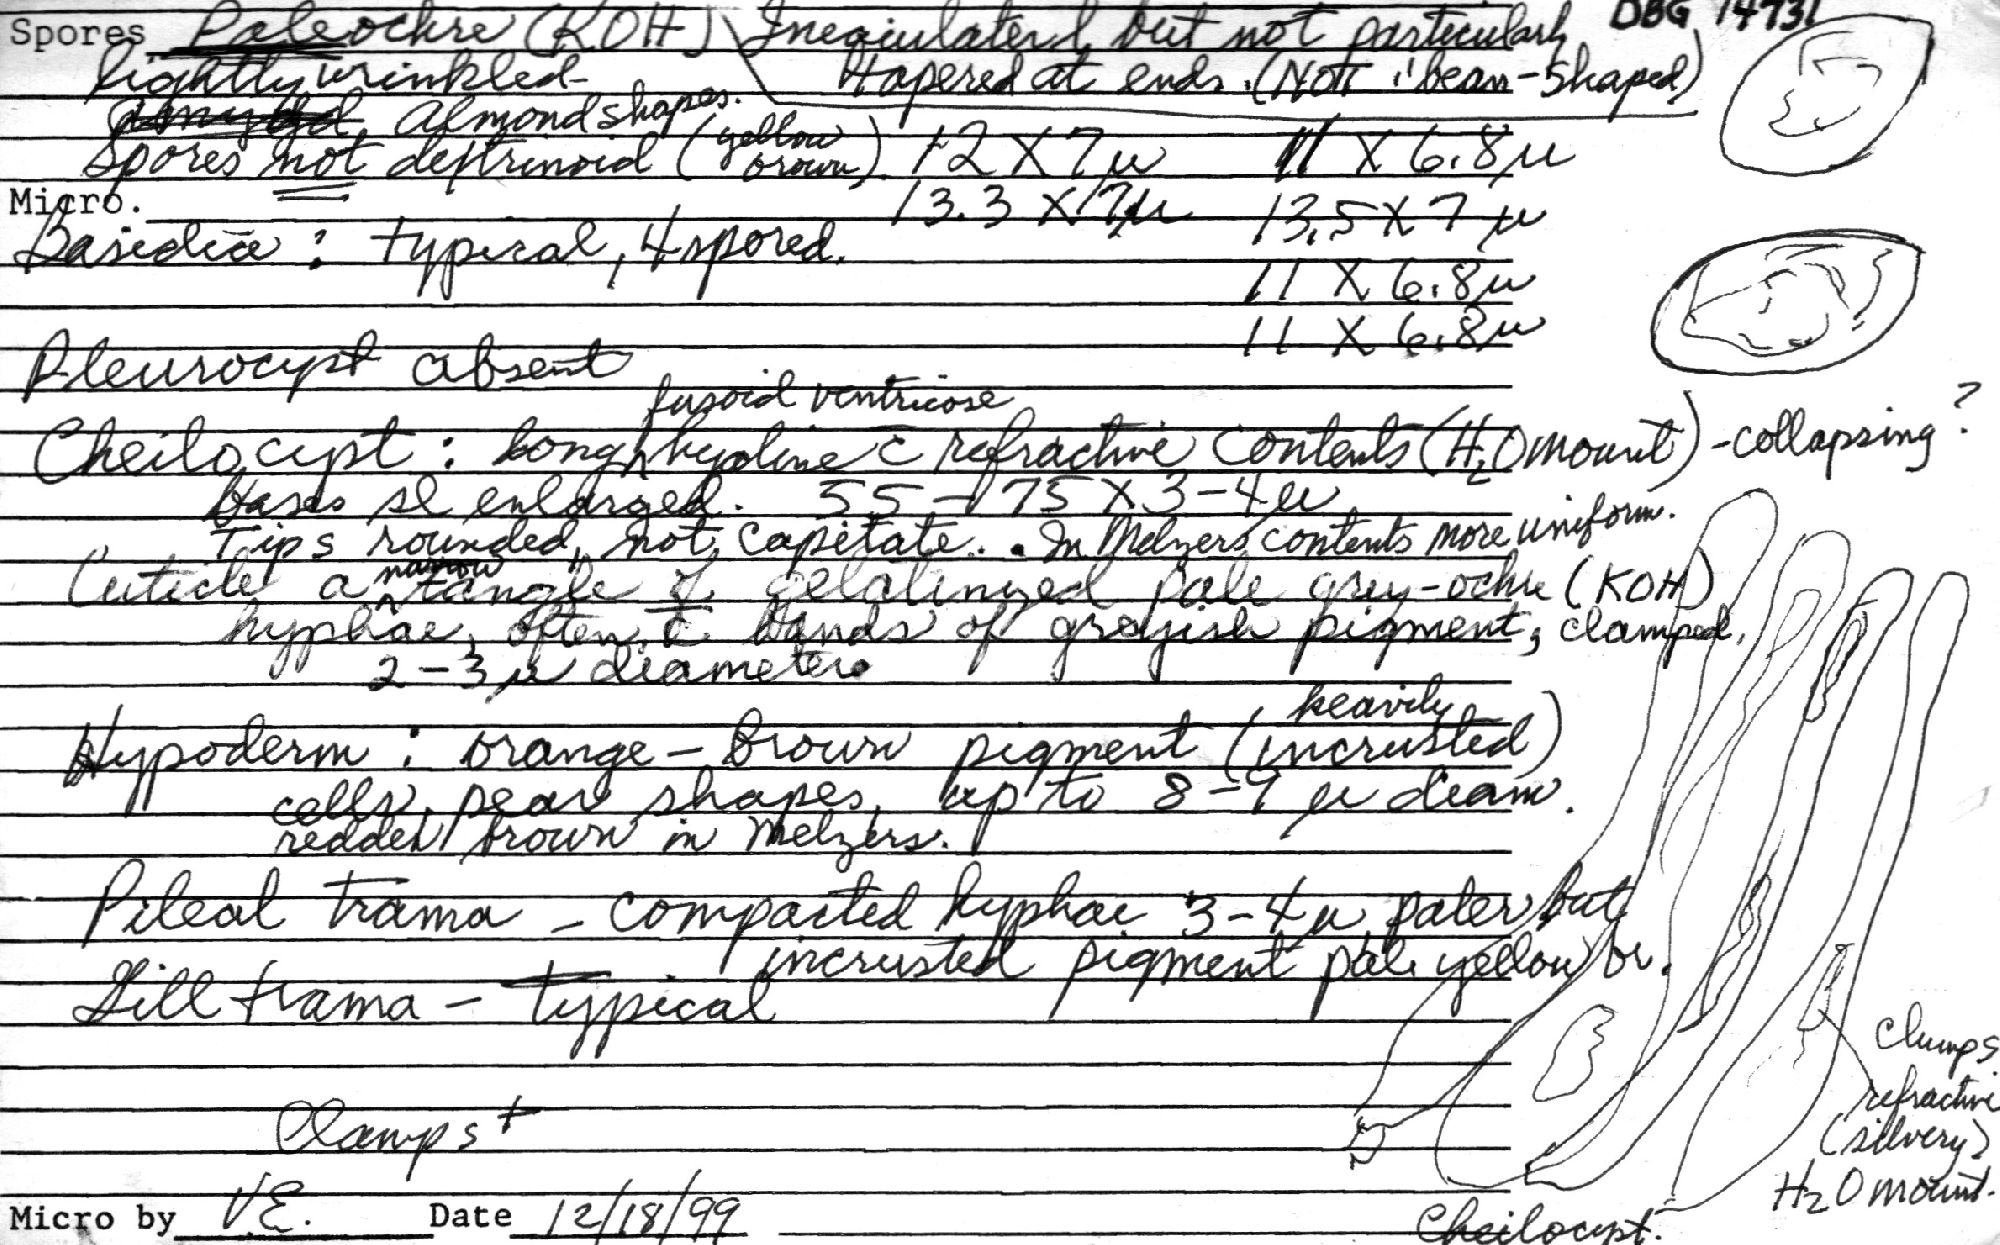 DBG 14731
Spores Pale ochre (KOH) Inequilateral, but not particularly
lightly wrinkled- tapered at ends. (Not bean-shaped)
Almond shapes.
Spores not dextrinoid (yellow brown) 12 X 7 µ 11 X 6.8 µ
Micro. 13.3 X 7 µ 13.5 X 7 µ
Basidia : typical, 4 spored.
11 X 6.8 µ
11 X 6.8 µ
Pleurocyst absent
fusoid ventricose
Cheilocyst : Long hyaline c̄ refractive contents (H2O mount) - collapsing?
bases sl enlarged. 55 - 75 X 3-4 µ
Tips rounded, not capitate. . In Melzers contents more uniform.
Cuticle a narrow tangle of gelatinized pale grey-ochre (KOH)
hyphae, often c̄ bands of greyish pigment, clamped,
2-3 µ diameter.
heavily
Hypoderm : orange-brown pigment (incrusted)
cells, pear shapes, up to 8-9 µ diam.
reddish brown in Melzers.
Pileal trama - compacted hyphae 3-4 µ, paler but
incrusted pigment pale yellow br.
Gill trama - typical
clumps
refractive
(silvery)
H2O mount.
Clamps +
Micro by V.E. Date 12/18/99
Cheilocyst.